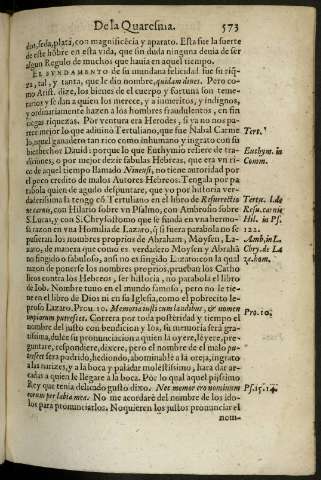 De la Quaresma. 573
din, seda, plata, con magnificēcia y aparato. Esta fue la suerte
de este hōbre en esta vida, que sin duda ninguna deuia de ser
algun Regulo de muchos que hauia en aquel tiempo.
EL FVNDAMENTO de su mundana felicidad fue su riq-
za, tal, y tanta, que le dio nombre, quidam diues. Pero co-
mo Arist. dize, los bienes de el cuerpo y fortuna son teme-
rarios y se dan a quien los merece, y a inmeritos, y indignos,
y ordinariamente hazen a los hombres fraudulentos, en fin
ciegas riquezas. Por ventura era Herodes, si ya no nos pa-
rece mejor lo que adiuinó Tertuliano, que fue Nabal Carme
lo, aquel ganadero tan rico como inhumano y ingrato con su
bienhechor Dauid: porque lo que Euthymio refiere de tra-
diciones, o por mejor dezir fabulas Hebreas, que era vn ri-
co de aquel tiempo llamado Ninensis, no tiene autoridad por
el poco credito de mulos Autores Hebreos. Tengala por pa
rabola quien de agudo despuntare, que yo por historia ver-
daderissima la tengo cō Tertuliano en el libro de Resurrectio
ne carnis, con Hilario sobre vn Psalmo, con Ambrosio sobre
S. Lucas, y con S. Chrysostomo que se funda en vna hermo-
sa razon en vna Homilia de Lazaro, q̄ si fuera parabola no se
pusieran los nombres proprios de Abraham, Moysen, La-
zaro, de manera que como es verdadero Moysen y Abrahā
no fingido o fabuloso, assi no es fingido Lazaro: con la qual
razon de ponerse los nombres proprios, prueban los Catho
licos contra los Hebreos, ser historia, no parabola el libro
de Iob. Nombre tuuo en el mundo famoso, pero no le tie-
ne en el libro de Dios ni en su Iglesia, como el pobrecito le-
proso Lazaro. Prou. 10. Memoria iusti cum laudibus, & nomen
impiorum putrescet. Correra por toda posteridad y tiempo el
nombre del justo con bendicion y los, su memoria será gra-
tissima, dulce su pronunciacion a quien la oyere, leyere, pre-
guntare, respondere, dixere, pero el nombre de el malo pu-
trescet sera podrido, hediondo, abominable a la oreja, ingrato
a las narizes, y a la boca y paladar molestissimo, hara dar ar-
cadas a quien le llegare a la boca. Por lo qual aquel pijssimo
Rey que tenia delicado gusto dixo. Nec memor ero nominum
eorum per labia mea. No me acordaré del nombre de los ido-
los para pronunciarlos. No quieren los justos pronunciar el
nom-
Tert.
Euthym. in
Comm.
Tertu. l. de
Resu. carnis
Hil. in Ps.
122.
Amb. in L.
Chry. de La
ze. hom.
Pro. 10.
Ps. 15. 14.